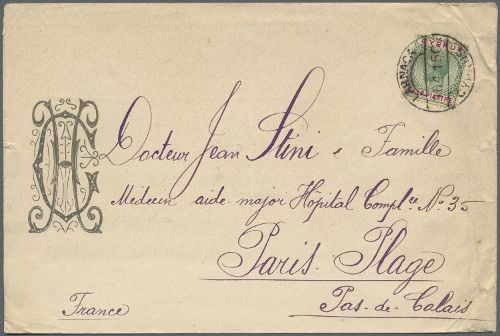 CYPRUS
LARNACA
PIASTRE
Docteur Jean Stini & Famille
Médecin aide major Hôpital Compl.re No. 35
Paris-Plage
Pas-de-Calais
France